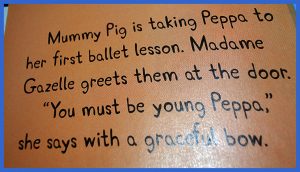 Mummy Pig is taking Peppa to
her first ballet lesson. Madame
Gazelle greets them at the door.
"You must be young Peppa,"
she says with a graceful bow.